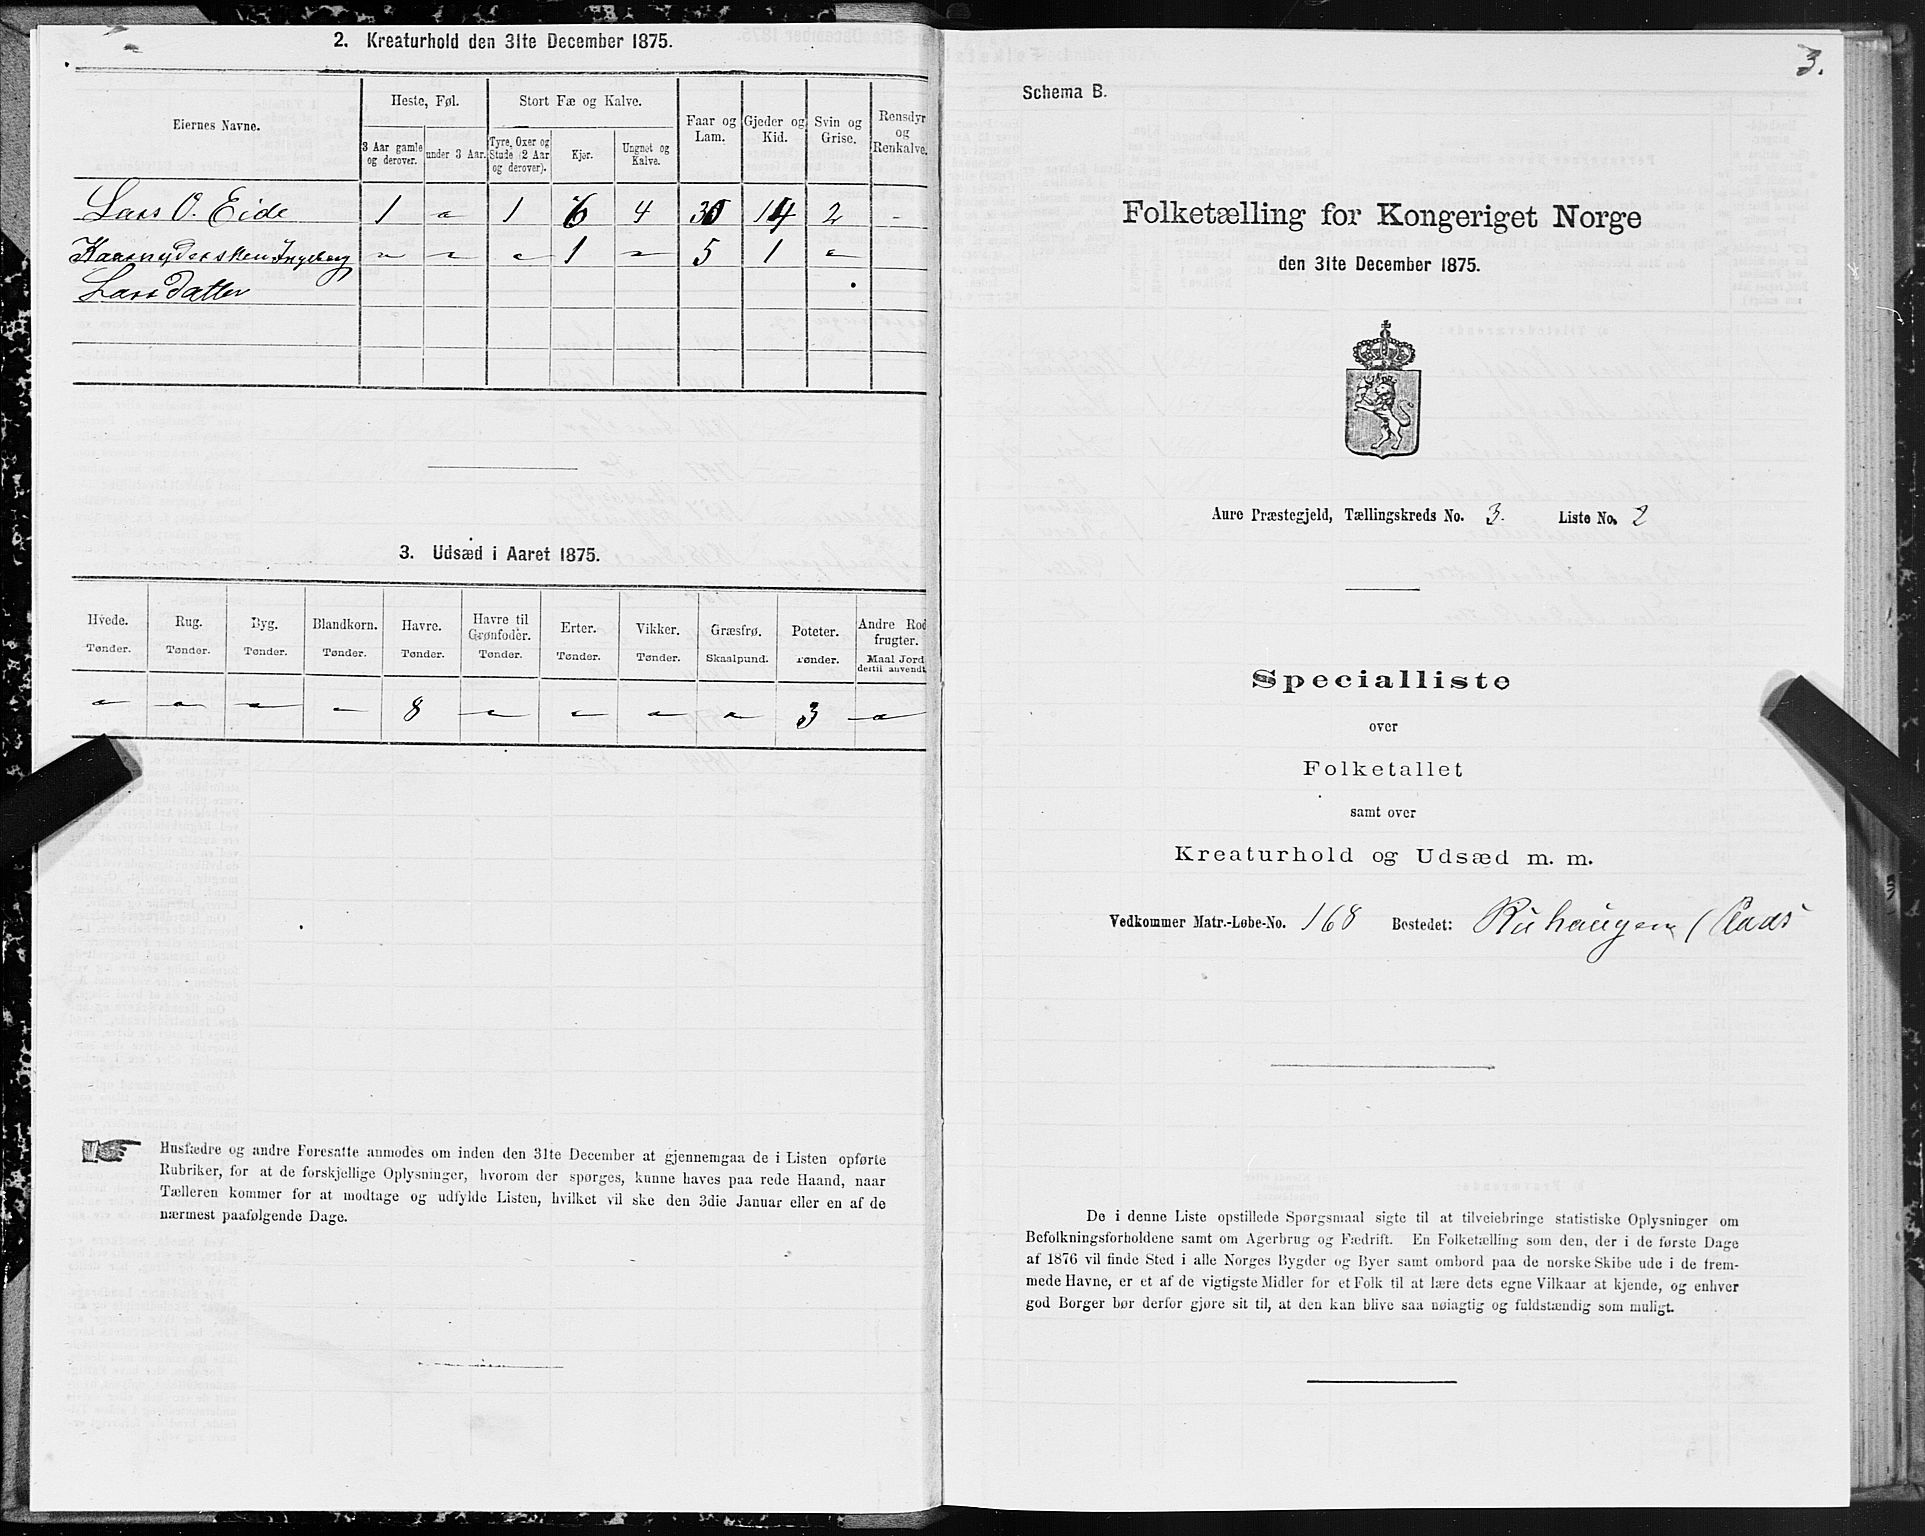 2. Kreaturhold den 31te December 1875.
Eiernes Navne.
Heste, Føl.
3 Aar gamle og derover.
under 3 Aar.
Stort Fæ og Kalve.
Tyre, Oxer og Stude (2 Aar og derover).
Kjør.
Ungnøt og Kalve.
Faar og Lam.
Gjeder og Kid.
Svin og Grise.
Rensdyr og Renkalve.
Lars O. Eide 1 " 1 6 4 30 14 2 -
Ingeborg " " " 1 " 5 1 "
Larsdatter
3. Udsæd i Aaret 1875.
Hvede. Rug. Byg. Blandkorn. Havre. Havre til Grønfoder. Erter. Vikker. Græsfrø. Poteter. Andre Rodfrugter.
Tønder. Tønder. Tønder. Tønder. Tønder. Tønder. Tønder. Tønder. Skaalpund. Tønder. Maal Jord dertil anvendt.
" " " " 8 " " " " 3 "
Husfædre og andre Foresatte anmodes om inden den 31te December at gjennemgaa de i Listen opførte
Rubriker, for at de forskjellige Oplysninger, hvorom der spørges, kunne haves paa rede Haand, naar
Tælleren kommer for at modtage og udfylde Listen, hvilket vil ske den 3die Januar eller en af de
nærmest paafølgende Dage.
3.
Schema B.
Folketælling for Kongeriget Norge
den 31te December 1875.
Aure Præstegjeld, Tællingskreds No. 3. Liste No. 2
Specialliste
over
Folketallet
samt over
Kreaturhold og Udsæd m. m.
Vedkommer Matr.-Løbe-No. 168 Bostedet: (Plads
De i denne Liste opstillede Spørgsmaal sigte til at tilveiebringe statistiske Oplysninger om
Befolkningsforholdene samt om Agerbrug og Fædrift. En Folketælling som den, der i de første Dage
af 1876 vil finde Sted i alle Norges Bygder og Byer samt ombord paa de norske Skibe ude i de frem-
mede Havne, er et af de vigtigste Midler for et Folk til at lære dets egne Vilkaar at kjende, og enhver
god Borger bør derfor gjøre sit til, at den kan blive saa nøiagtig og fuldstændig som muligt.